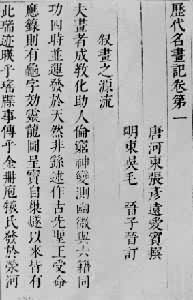 歷代名畫記卷第一
唐河東張彥遠愛賓撰
明東吳毛晉子晉訂
叙畫之源流
夫畫者成敎化助人倫窮神變測幽微與六籍同
功四時並運發於天然非繇述作古先聖王受命
應籙則有龜字效靈龍圖呈寶自巢燧以來皆有
此瑞迹暎乎瑤牒事傳乎金冊庖犧氏發於滎河